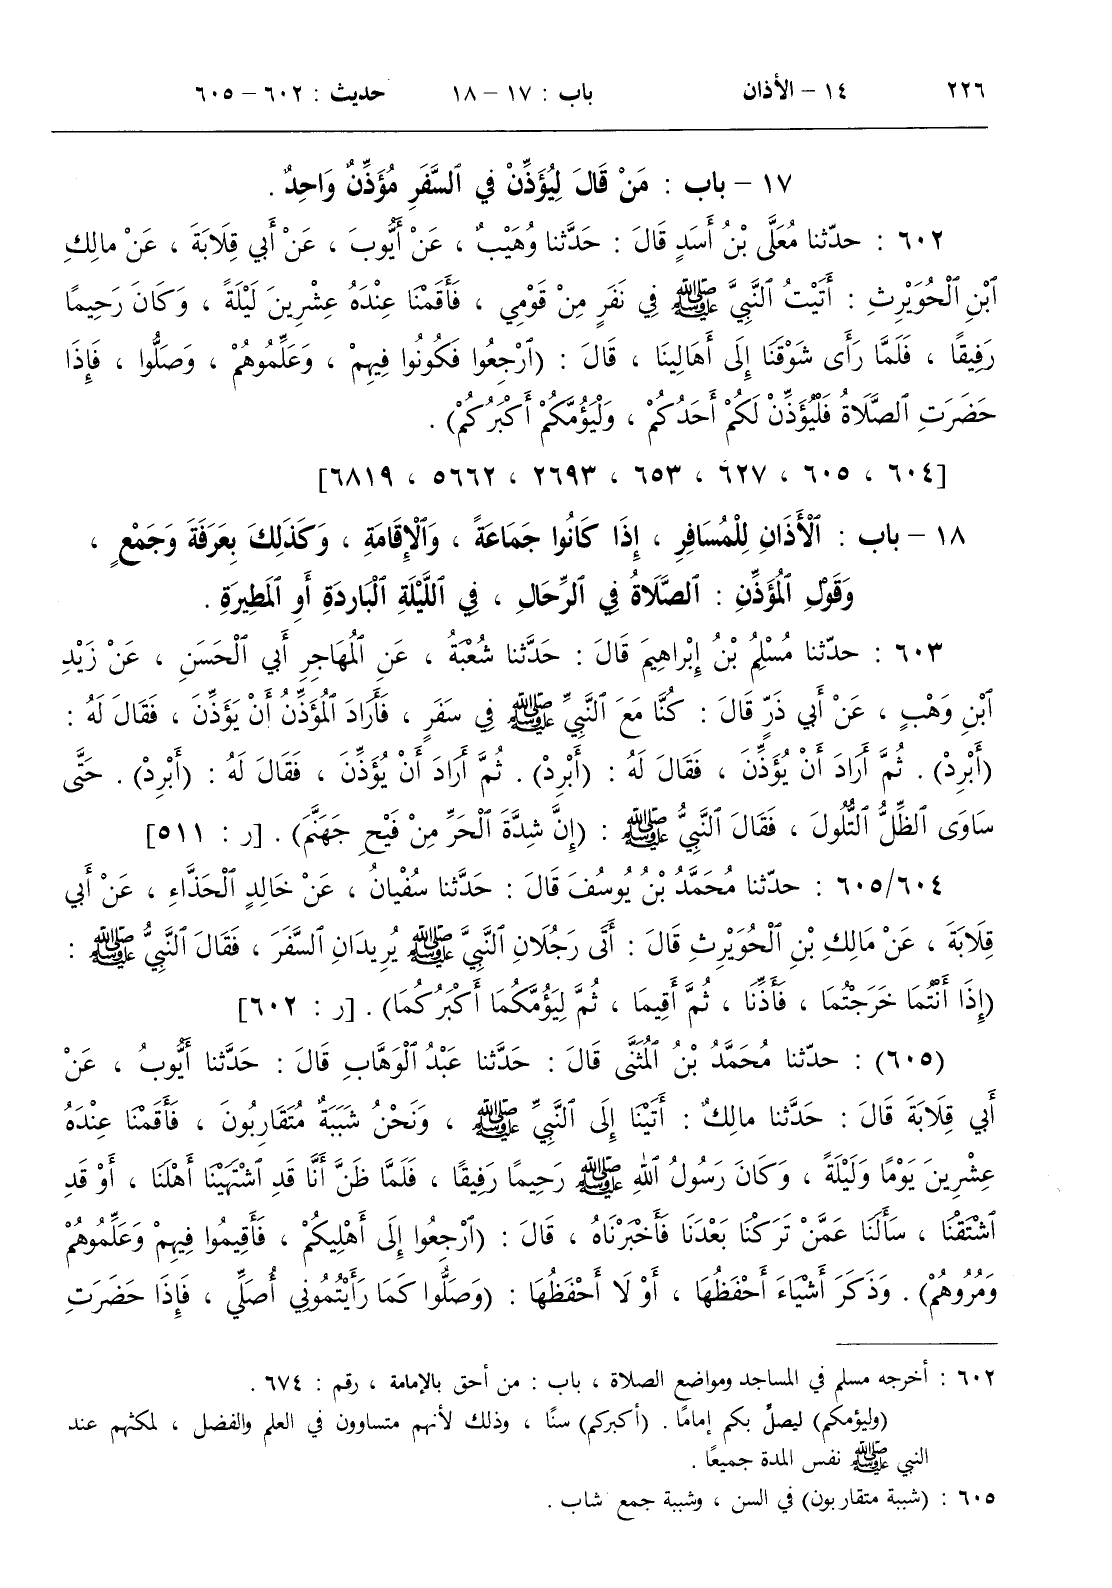 ٢٢٦ ١٤ – الأذان باب : ١٧ – ١٨ حديث : ٦٠٢ – ٦٠٥
١٧ – باب : مَنْ قَالَ لِيُؤَذِّنْ فِي ٱلسَّفَرِ مُؤَذِّنٌ وَاحِدٌ .
٦٠٢ : حدّثنا مُعَلَّى بْنُ أَسَدٍ قَالَ : حَدَّثنا وُهَيْبٌ ، عَنْ أَيُّوبَ ، عَنْ أَبي قِلَابَةَ ، عَنْ مالِكِ
ٱبْنِ ٱلْحُوَيْرِثِ : أَتَيْتُ ٱلنَّبِيَّ ﷺ فِي نَفَرٍ مِنْ قَوْمِي ، فَأَقَمْنَا عِنْدَهُ عِشْرِينَ لَيْلَةً ، وَكَانَ رَحِيمًا
رَفِيقًا ، فَلَمَّا رَأَى شَوْقَنَا إِلَى أَهَالِينَا ، قَالَ : (ٱرْجِعُوا فَكُونُوا فِيهِمْ ، وَعَلِّمُوهُمْ ، وَصَلُّوا ، فَإِذَا
حَضَرَتِ ٱلصَّلَاةُ فَلْيُؤَذِّنْ لَكُمْ أَحَدُكُمْ ، وَلْيَؤُمَّكُمْ أَكْبَرُكُمْ) .
[٦٠٤ ، ٦٠٥ ، ٦٢٧ ، ٦٥٣ ، ٢٦٩٣ ، ٥٦٦٢ ، ٦٨١٩]
١٨ – باب : ٱلْأَذَانِ لِلْمُسَافِرِ ، إِذَا كَانُوا جَمَاعَةً ، وَٱلْإِقَامَةِ ، وَكَذَلِكَ بِعَرَفَةَ وَجَمْعٍ ،
وَقَوْلِ ٱلْمُؤَذِّنِ : ٱلصَّلَاةُ فِي ٱلرِّحَالِ ، فِي ٱللَّيْلَةِ ٱلْبَارِدَةِ أَوِ ٱلمَطِيرَةِ .
٦٠٣ : حدّثنا مُسْلِمُ بْنُ إِبْراهِيمَ قَالَ : حَدَّثنا شُعْبَةُ ، عَنِ ٱلْمُهَاجِرِ أَبي ٱلْحَسَنِ ، عَنْ زَيْدِ
ٱبْنِ وَهْبٍ ، عَنْ أَبي ذَرٍّ قَالَ : كُنَّا مَعَ ٱلنَّبِيِّ ﷺ فِي سَفَرٍ ، فَأَرَادَ ٱلْمُؤَذِّنُ أَنْ يُؤَذِّنَ ، فَقَالَ لَهُ :
(أَبْرِدْ) . ثُمَّ أَرَادَ أَنْ يُؤَذِّنَ ، فَقَالَ لَهُ : (أَبْرِدْ) . ثُمَّ أَرَادَ أَنْ يُؤَذِّنَ ، فَقَالَ لَهُ : (أَبْرِدْ) . حَتَّى
سَاوَى ٱلظِّلُّ ٱلتُّلُولَ ، فَقَالَ ٱلنَّبِيُّ ﷺ : (إِنَّ شِدَّةَ ٱلْحَرِّ مِنْ فَيْحِ جَهَنَّمَ) . [ر : ٥١١]
٦٠٥/٦٠٤ : حدّثنا مُحَمَّدُ بْنُ يُوسُفَ قَالَ : حَدَّثنا سُفْيَانُ ، عَنْ خَالِدٍ ٱلْحَذَّاءِ ، عَنْ أَبي
قِلَابَةَ ، عَنْ مَالِكِ بْنِ ٱلْحُوَيْرِثِ قَالَ : أَتَى رَجُلَانِ ٱلنَّبِيَّ ﷺ يُرِيدَانِ ٱلسَّفَرَ ، فَقَالَ ٱلنَّبِيُّ ﷺ :
(إِذَا أَنْتُمَا خَرَجْتُمَا ، فَأَذِّنَا ، ثُمَّ أَقِيمَا ، ثُمَّ لِيَؤُمَّكُمَا أَكْبَرُكُمَا) . [ر : ٦٠٢]
(٦٠٥) : حدّثنا مُحَمَّدُ بْنُ ٱلْمُثَنَّى قَالَ : حَدَّثنا عَبْدُ ٱلْوَهَّابِ قَالَ : حَدَّثنا أَيُّوبُ ، عَنْ
أَبي قِلَابَةَ قَالَ : حَدَّثنا مالِكٌ : أَتَيْنَا إِلَى ٱلنَّبِيِّ ﷺ ، وَنَحْنُ شَبَبَةٌ مُتَقَارِبُونَ ، فَأَقَمْنَا عِنْدَهُ
عِشْرِينَ يَوْمًا وَلَيْلَةً ، وَكَانَ رَسُولُ ٱللهِ ﷺ رَحِيمًا رَفِيقًا ، فَلَمَّا ظَنَّ أَنَّا قَدِ ٱشْتَهَيْنَا أَهْلَنَا ، أَوْ قَدِ
ٱشْتَقْنَا ، سَأَلَنَا عَمَّنْ تَرَكْنَا بَعْدَنَا فَأَخْبَرْنَاهُ ، قَالَ : (ٱرْجِعُوا إِلَى أَهْلِيكُمْ ، فَأَقِيمُوا فِيهِمْ وَعَلِّمُوهُمْ
وَمُرُوهُمْ) . وَذَكَرَ أَشْيَاءَ أَحْفَظُهَا ، أَوْ لَا أَحْفَظُهَا : (وَصَلُّوا كَمَا رَأَيْتُمُونِي أُصَلِّي ، فَإِذَا حَضَرَتِ
٦٠٢ : أخرجه مسلم في المساجد ومواضع الصلاة ، باب : من أحق بالإمامة ، رقم : ٦٧٤ .
(وليؤمكم) ليصلِّ بكم إمامًا . (أكبركم) سنًا ، وذلك لأنهم متساوون في العلم والفضل ، لمكثهم عند
النبي ﷺ نفس المدة جميعًا .
٦٠٥ : (شببة متقاربون) في السن ، وشببة جمع شاب .